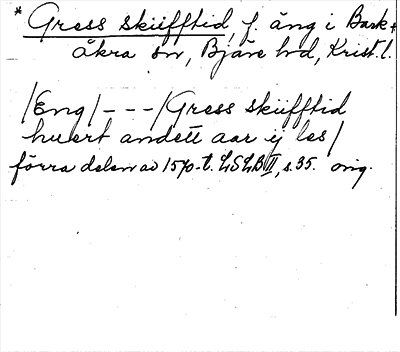 * Gress skiifftid, f. äng i Bark-
åkra sn, Bjäre hd, Krist. l.
/Eng/ - - - /Gress skiifftid
huert andett aar ij les/
förra delen av 1570-t. LSLB II, s. 35. orig.